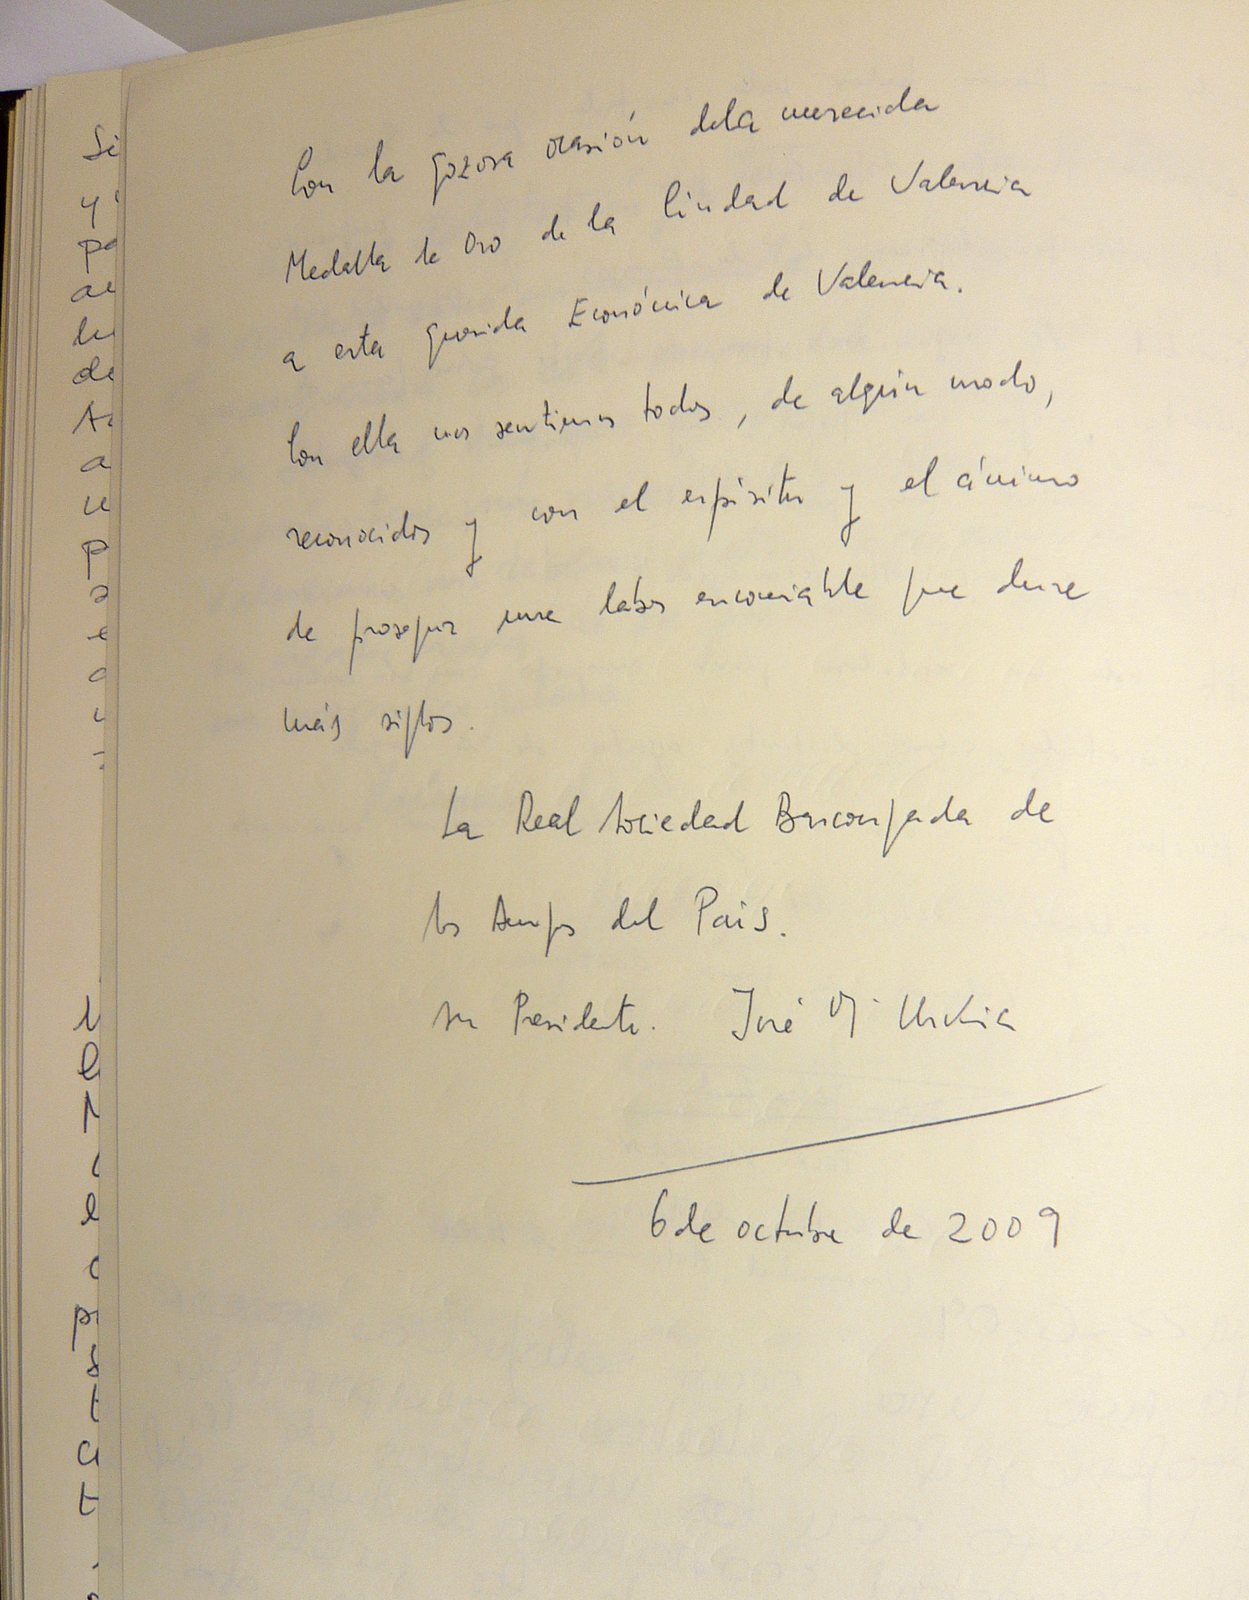 Con la gozosa ocasión de la merecida
Medalla de Oro de la Ciudad de Valencia
a esta querida Económica de Valencia.
Con ella nos sentimos todos, de algún modo,
reconocidos y con el espíritu y el ánimo
de proseguir una labor encomiable que dure
más siglos.
La Real Sociedad Bascongada de
los Amigos del País.
su Presidente. José Mª Urkia
6 de octubre de 2009